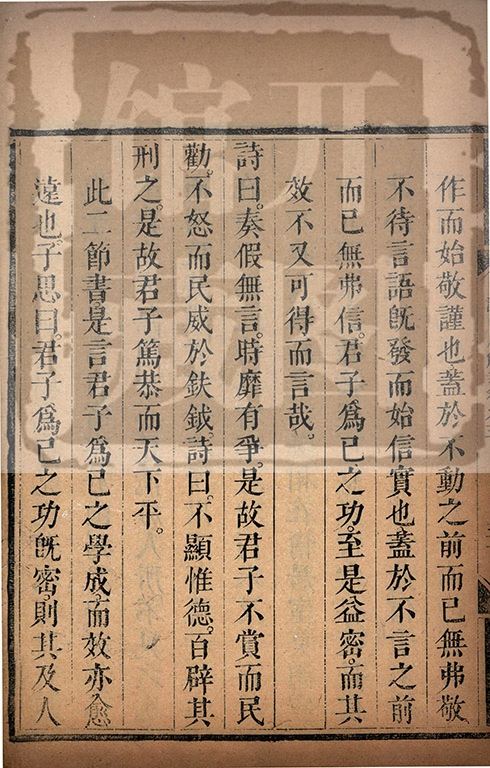 作而始敬謹也蓋於不動之前而已無弗敬
不待言語既發而始信實也蓋於不言之前
而已無弗信君子爲己之功至是益密而其
效不又可得而言哉
詩曰奏假無言時靡有爭是故君子不賞而民
勸不怒而民威於鈇鉞詩曰不顯惟德百辟其
刑之是故君子篤恭而天下平
此二節書是言君子爲己之學成而效亦愈
遠也子思曰君子爲己之功既密則其及人